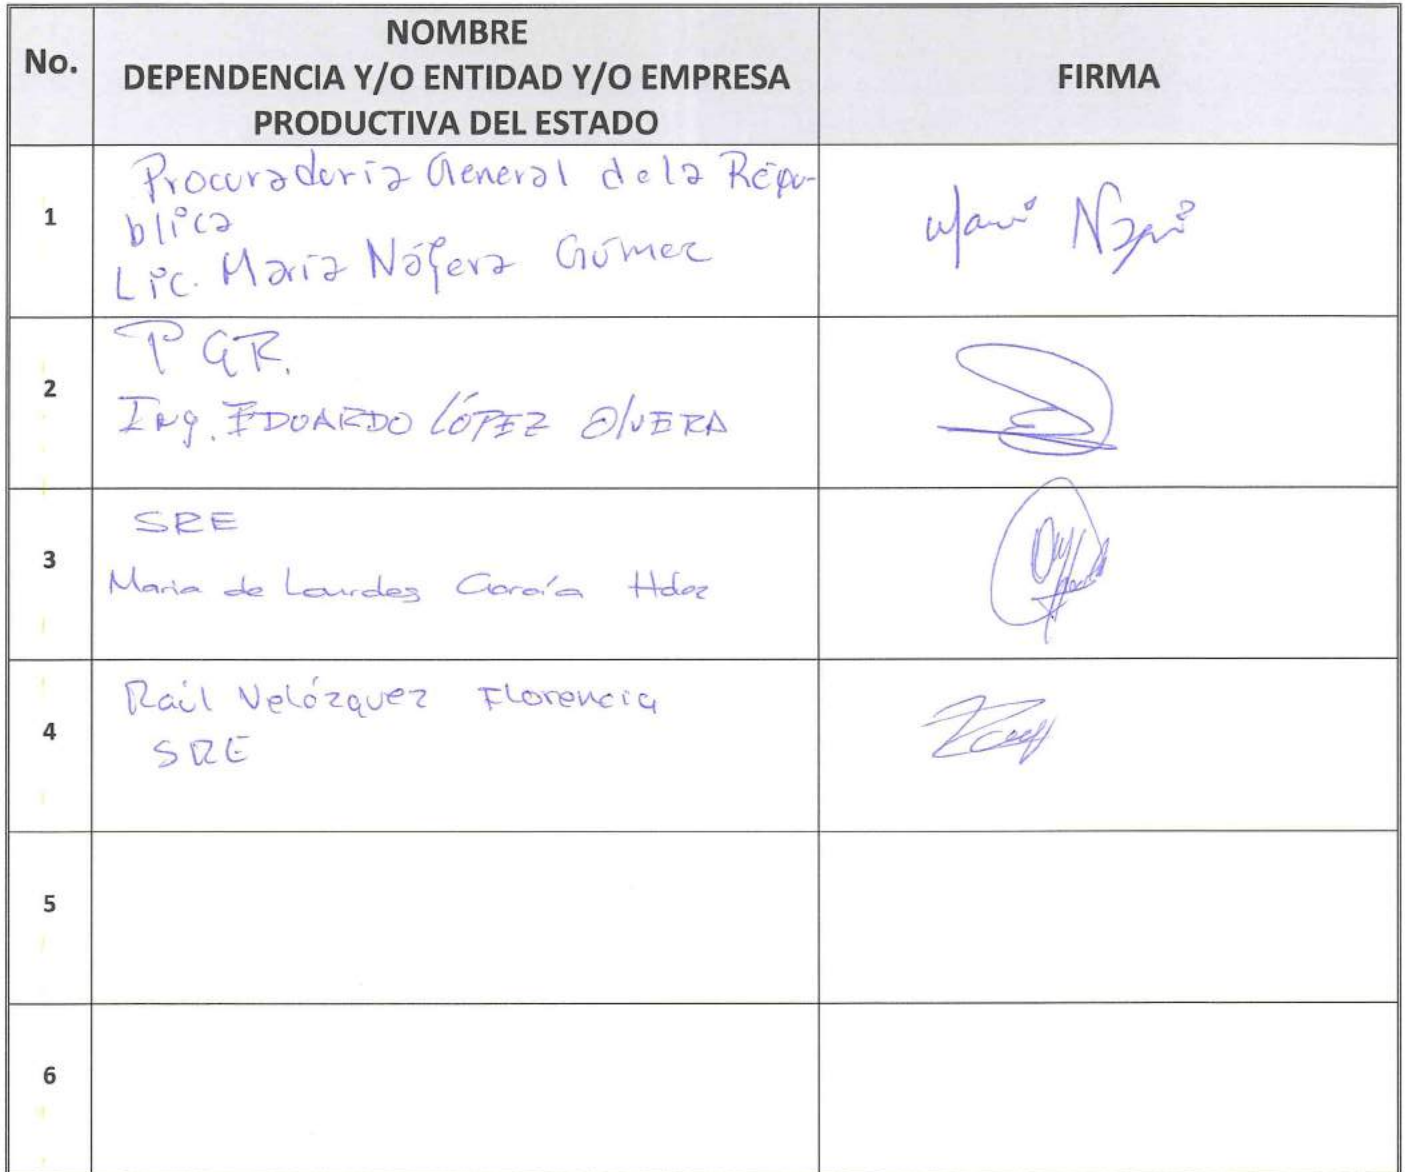 No.
NOMBRE
DEPENDENCIA Y/O ENTIDAD Y/O EMPRESA
PRODUCTIVA DEL ESTADO
FIRMA
1
Procuraduría General de la Repú-
blica
Lic. María Nájera Gómez
2
PGR.
Ing. EDUARDO LÓPEZ OlvERA
3
SRE
Maria de Lourdes García Hdez
4
Raúl Velázquez Florencia
SRE
5
6